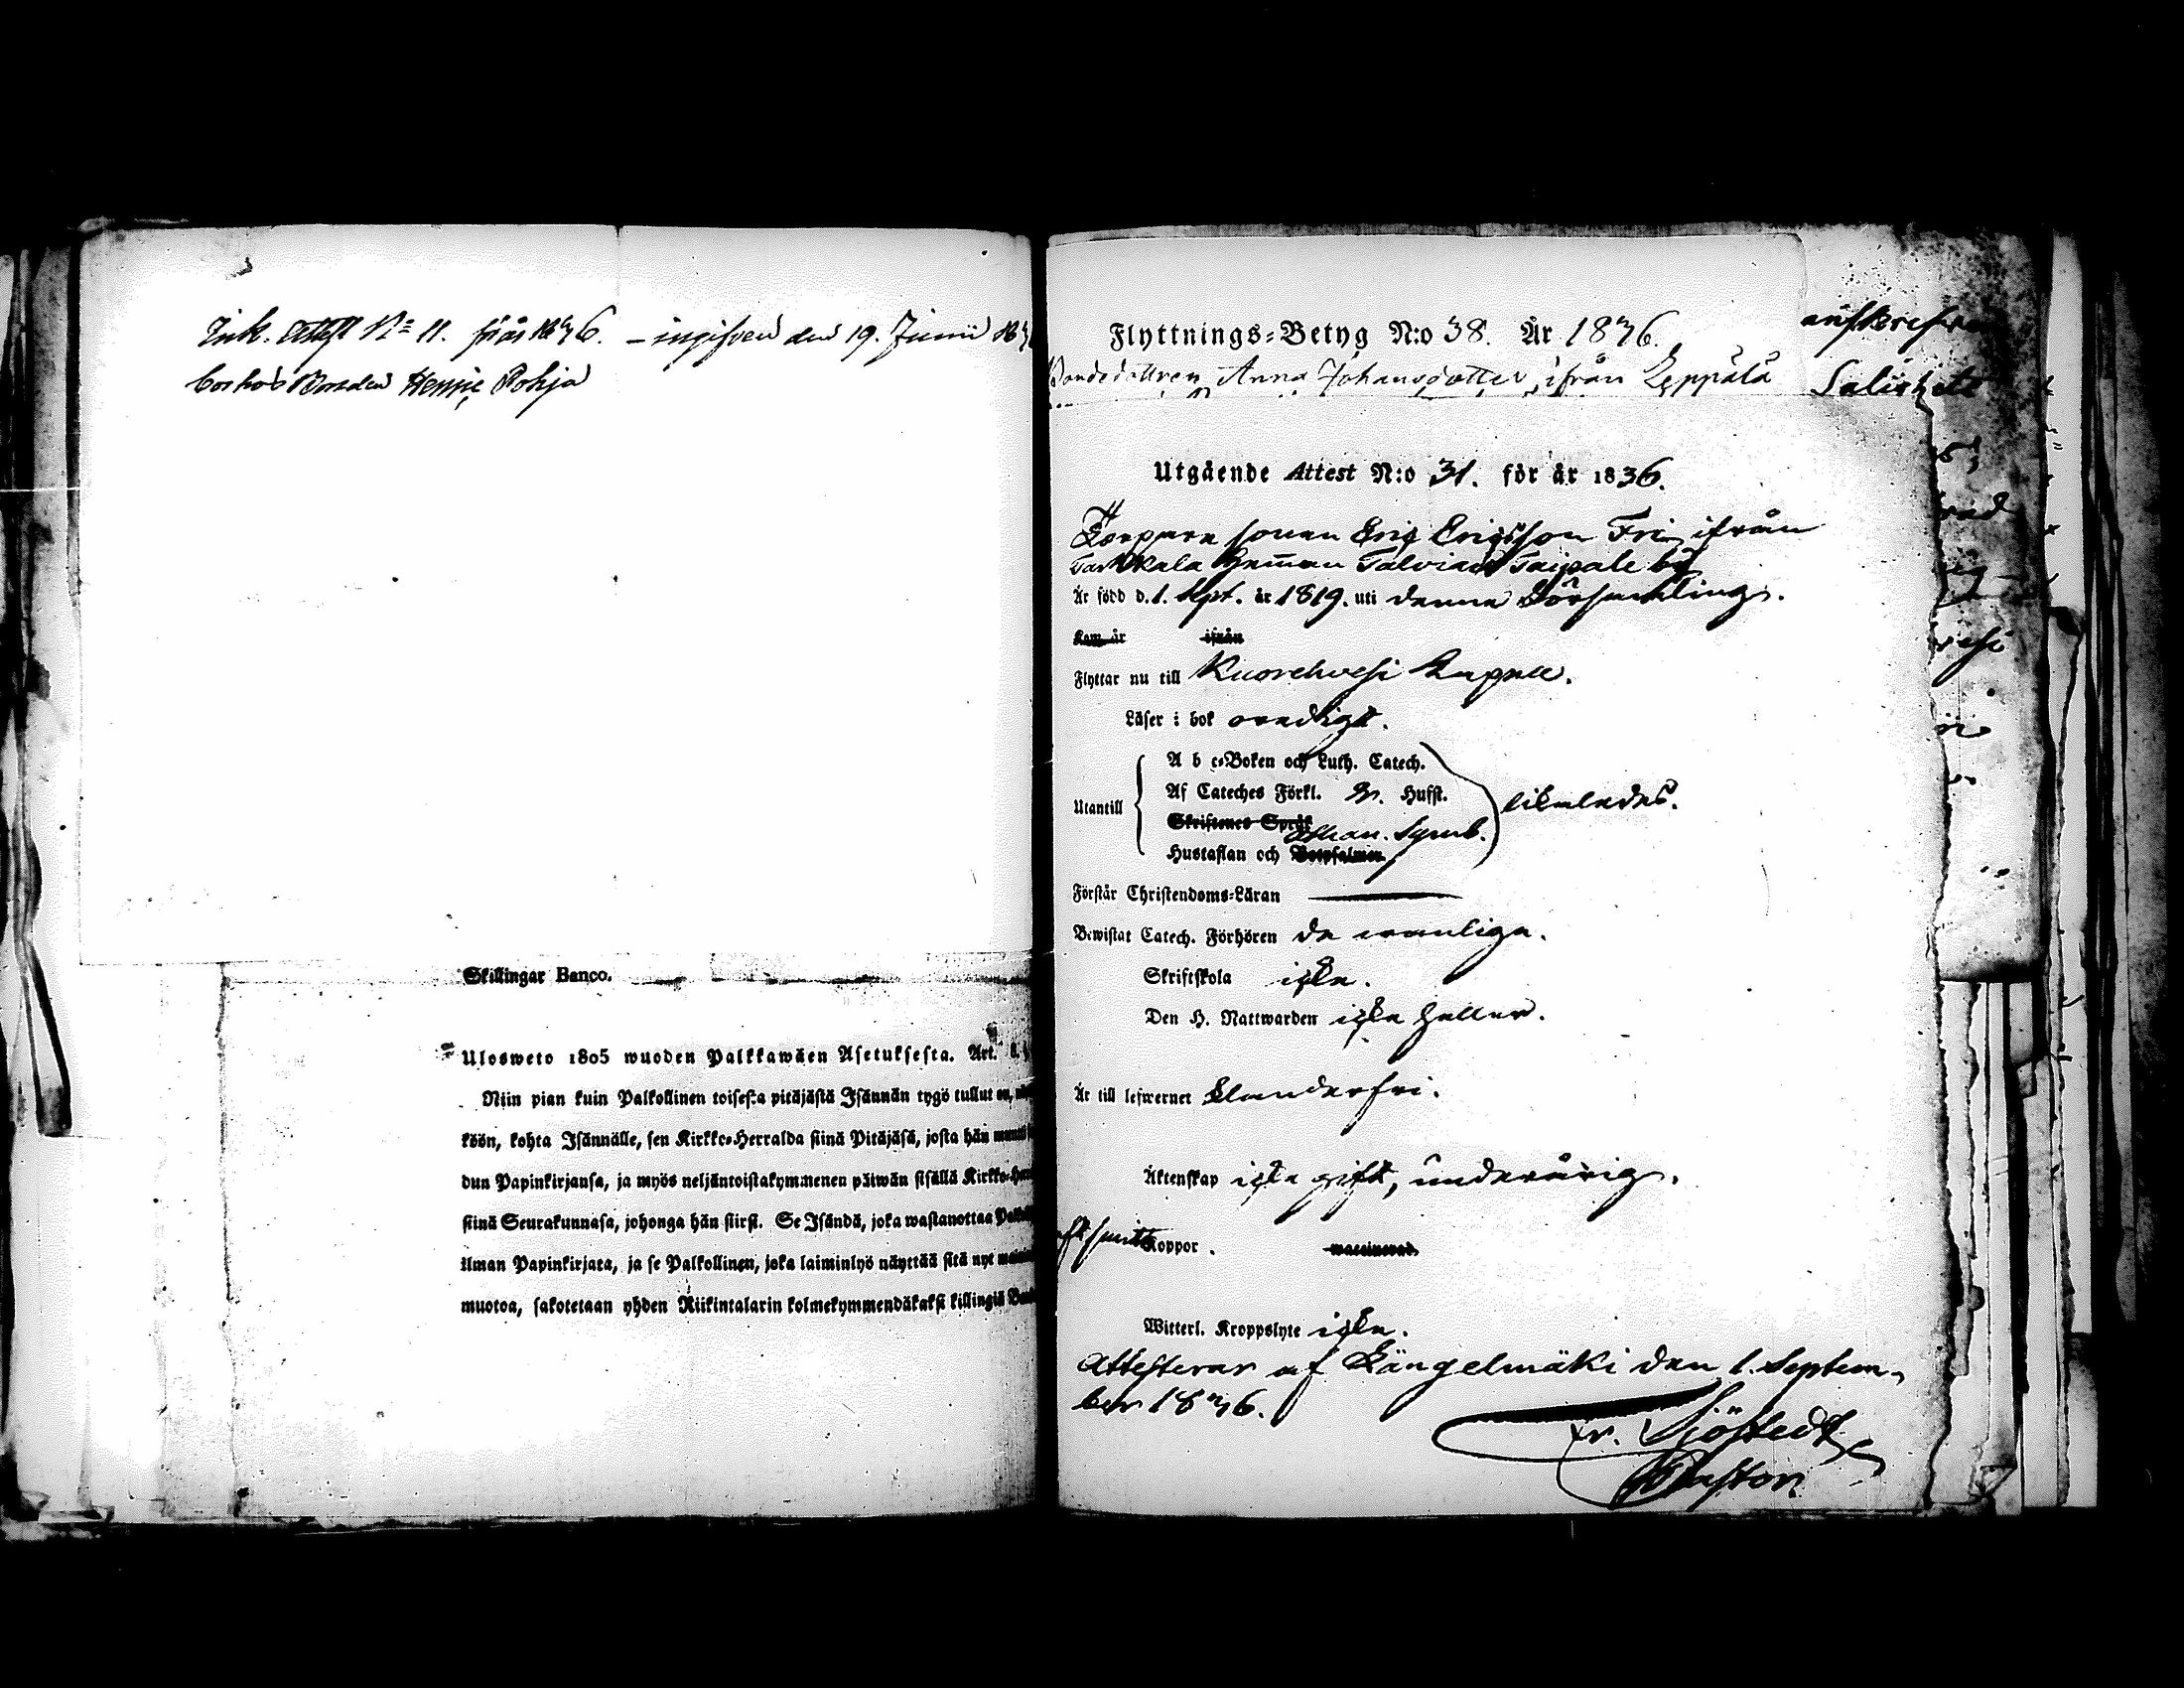 Ink. Attest No 11. från 1836. – ingifven den 19. Junii 183
bor hos Bonden Henric Pohja
Skillingar Banco.
Ulosweto 1805 wuoden Palkkawäen Asetuksesta. Art. 8.
Niin pian kuin Palkollinen toisesta pitäjästä Isännän tygö tullut on,
köön, kohta Isännälle, sen Kirkko-Herralda siinä Pitäjäsä, josta hän
dun Papinkirjansa, ja myös neljäntoistakymmenen päiwän sisällä Kirkko-
siinä Seurakunnasa, johonga hän siirsi. Se Isändä, joka wastanottaa
ilman Papinkirjata, ja se Palkollinen, joka laiminlyö näyttää sitä nyt
muotoa, sakotetaan yhden Riikintalarin kolmekymmendäkaksi killingiä
Flyttnings-Betyg N:o 38. År 1836.
Bondedottren Anna Johansdotter, ifrån Leppälä
Utgående Attest N:o 31. för år 1836.
Torpare sonen Eric Ericsson Fri, ifrån
hemman Talviais Taipale by
Är född d. 1. Sept. år 1819. uti denna Församling.
Kom år ifrån
Flyttar nu till Kuorehvesi Capell.
Läser i bok oredigt.
Utantill
A b c-Boken och Luth. Catech.
Af Cateches Förkl. 3. Hufst.
Skriftenes Språk
Athan. Symb.
Hustaflan och Botpsalmer
likaledes.
Förstår Christendoms-Läran
Bewistat Catech. Förhören de vanliga.
Skriftskola icke.
Den H. Nattwarden icke heller.
Är till lefwernet klanderfri.
Äktenskap icke gift, underårig.
Koppor. vaccinerad.
Witterl. Kroppslyte icke.
Attesterar af Längelmäki den 1. Septem-
ber 1836.
Fr. Sjöstedt
Pastor